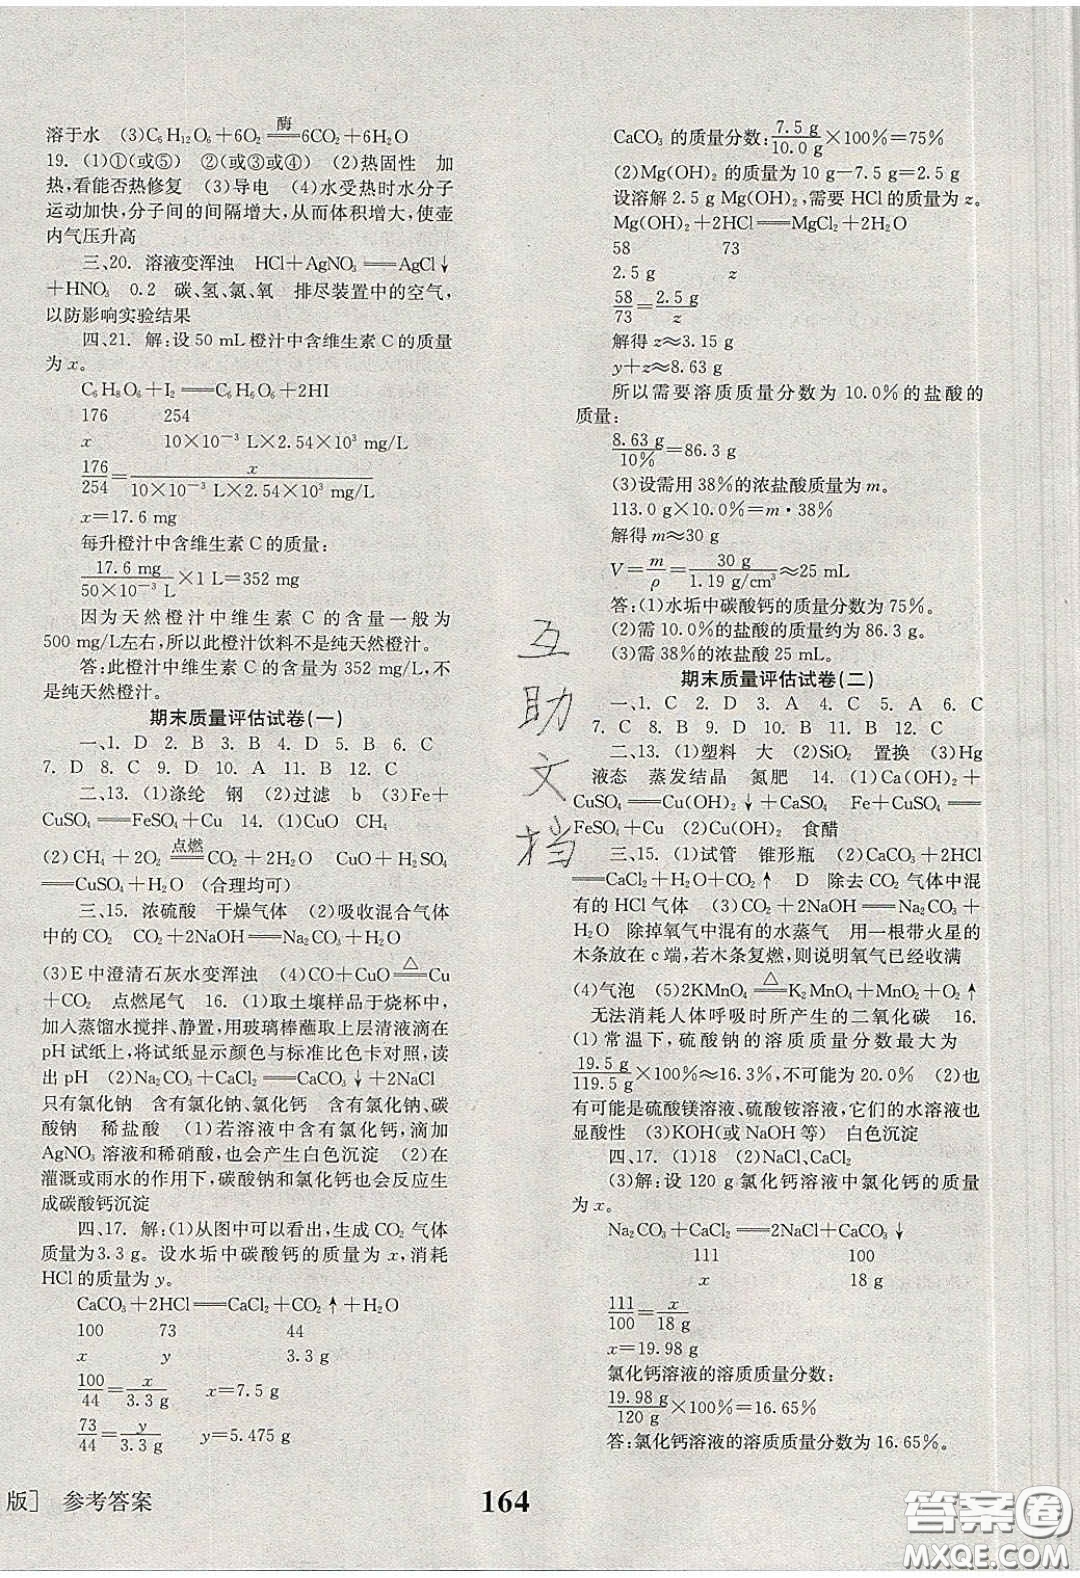 溶于水 (3)C₆H₁₂O₆+6O₂ 酶══6CO₂+6H₂O
19. (1)①(或⑤) ②(或③或④) (2)热固性 加
热,看能否热修复 (3)导电 (4)水受热时水分子
运动加快,分子间的间隔增大,从而体积增大,使壶
内气压升高
三、20. 溶液变浑浊 HCl+AgNO₃══AgCl↓
+HNO₃ 0.2 碳、氢、氯、氧 排尽装置中的空气,
以防影响实验结果
四、21. 解:设 50 mL橙汁中含维生素 C的质量
为 x。
C₆H₈O₆+I₂══C₆H₆O₆+2HI
176 254
x 10×10⁻³ L×2.54×10³ mg/L
176/254=x/(10×10⁻³ L×2.54×10³ mg/L)
x=17.6 mg
每升橙汁中含维生素 C的质量:
17.6 mg/(50×10⁻³ L)×1 L=352 mg
因为天然橙汁中维生素 C 的含量一般为
500 mg/L左右,所以此橙汁饮料不是纯天然橙汁。
答:此橙汁中维生素 C的含量为 352 mg/L,不
是纯天然橙汁。
期末质量评估试卷(一)
一、1. D 2. B 3. B 4. D 5. B 6. C
7. D 8. C 9. D 10. A 11. B 12. C
二、13. (1)涤纶 钢 (2)过滤 b (3)Fe+
CuSO₄══FeSO₄+Cu 14. (1)CuO CH₄
(2)CH₄+2O₂ 点燃══CO₂+2H₂O CuO+H₂SO₄
══CuSO₄+H₂O (合理均可)
三、15. 浓硫酸 干燥气体 (2)吸收混合气体
中的 CO₂ CO₂+2NaOH══Na₂CO₃+H₂O
(3)E中澄清石灰水变浑浊 (4)CO+CuO △══Cu
+CO₂ 点燃尾气 16. (1)取土壤样品于烧杯中,
加入蒸馏水搅拌、静置,用玻璃棒蘸取上层清液滴在
pH 试纸上,将试纸显示颜色与标准比色卡对照,读
出 pH (2)Na₂CO₃+CaCl₂══CaCO₃↓+2NaCl
只有氯化钠 含有氯化钠、氯化钙 含有氯化钠、碳
酸钠 稀盐酸 (1)若溶液中含有氯化钙,滴加
AgNO₃溶液和稀硝酸,也会产生白色沉淀 (2)在
灌溉或雨水的作用下,碳酸钠和氯化钙也会反应生
成碳酸钙沉淀
四、17. 解:(1)从图中可以看出,生成 CO₂气体
质量为3.3 g。设水垢中碳酸钙的质量为 x,消耗
HCl的质量为 y。
CaCO₃+2HCl══CaCl₂+CO₂↑+H₂O
100 73 44
x y 3.3 g
100/44=x/3.3 g x=7.5 g
73/44=y/3.3 g y=5.475 g
CaCO₃ 的质量分数:7.5 g/10.0 g×100%=75%
(2)Mg(OH)₂ 的质量为 10 g-7.5 g=2.5 g
设溶解 2.5 g Mg(OH)₂,需要 HCl的质量为 z。
Mg(OH)₂+2HCl══MgCl₂+2H₂O
58 73
2.5 g z
58/73=2.5 g/z
解得 z≈3.15 g
y+z≈8.63 g
所以需要溶质质量分数为 10.0%的盐酸的
质量:
8.63 g/10%=86.3 g
(3)设需用 38%的浓盐酸质量为 m。
113.0 g×10.0%=m·38%
解得 m≈30 g
V=m/ρ=30 g/1.19 g/cm³≈25 mL
答:(1)水垢中碳酸钙的质量分数为 75%。
(2)需 10.0%的盐酸的质量约为 86.3 g。
(3)需 38%的浓盐酸 25 mL。
期末质量评估试卷(二)
一、1. C 2. D 3. A 4. C 5. A 6. C
7. C 8. B 9. D 10. B 11. B 12. C
二、13. (1)塑料 大 (2)SiO₂ 置换 (3)Hg
液态 蒸发结晶 氮肥 14. (1)Ca(OH)₂+
CuSO₄══Cu(OH)₂↓+CaSO₄ Fe+CuSO₄══
FeSO₄+Cu (2)Cu(OH)₂ 食醋
三、15. (1)试管 锥形瓶 (2)CaCO₃+2HCl
══CaCl₂+H₂O+CO₂↑ D 除去 CO₂气体中混
有的 HCl气体 (3)CO₂+2NaOH══Na₂CO₃+
H₂O 除掉氧气中混有的水蒸气 用一根带火星的
木条放在 c端,若木条复燃,则说明氧气已经收满
(4)气泡 (5)2KMnO₄ △══K₂MnO₄+MnO₂+O₂↑
无法消耗人体呼吸时所产生的二氧化碳 16.
(1)常温下,硫酸钠的溶质质量分数最大为
19.5 g/119.5 g×100%≈16.3%,不可能为 20.0% (2)也
有可能是硫酸镁溶液、硫酸铵溶液,它们的水溶液也
显酸性 (3)KOH(或 NaOH 等) 白色沉淀
四、17. (1)18 (2)NaCl、CaCl₂
(3)解:设 120 g氯化钙溶液中氯化钙的质量
为 x。
Na₂CO₃+CaCl₂══2NaCl+CaCO₃↓
111 100
x 18 g
111/100=x/18 g
x=19.98 g
氯化钙溶液的溶质质量分数:
19.98 g/120 g×100%=16.65%
答:氯化钙溶液的溶质质量分数为 16.65%。
互
助
文
档
版] 参考答案
164
答案圈
MXQE.COM